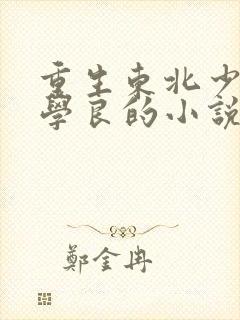 重生東北少
學良的小說
鄭金冉